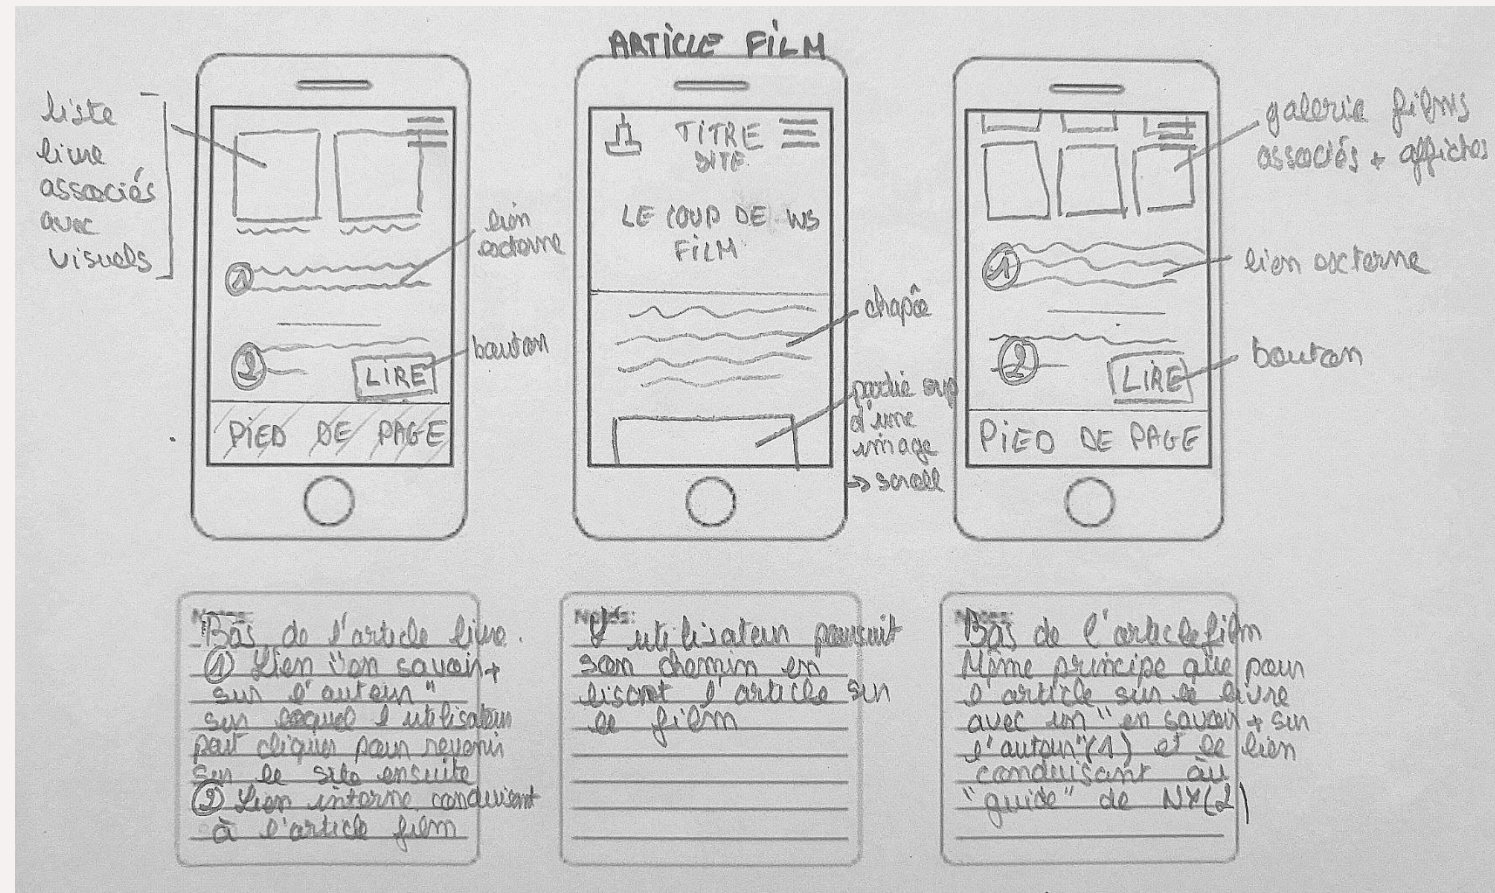 ARTICLE FILM
liste
livre
associés
avec
visuels
lien
externe
1
2
LIRE
bouton
PIED DE PAGE
TITRE
SITE
LE COUP DE WS
FILM
chapô
partie sup
d'une
image
→ scroll
galerie films
associés + affiches
1
lien externe
2
LIRE
bouton
PIED DE PAGE
Notes:
Bas de l'article livre.
① Lien "en savoir +
sur l'auteur"
sur lequel l'utilisateur
peut cliquer pour revenir
sur le site ensuite
② Lien interne conduisant
à l'article film
Notes:
L'utilisateur poursuit
son chemin en
lisant l'article sur
le film
Notes:
Bas de l'article film
Même principe que pour
l'article sur le livre
avec un "en savoir + sur
l'auteur" (1) et le lien
conduisant au
"guide" de NY (2)